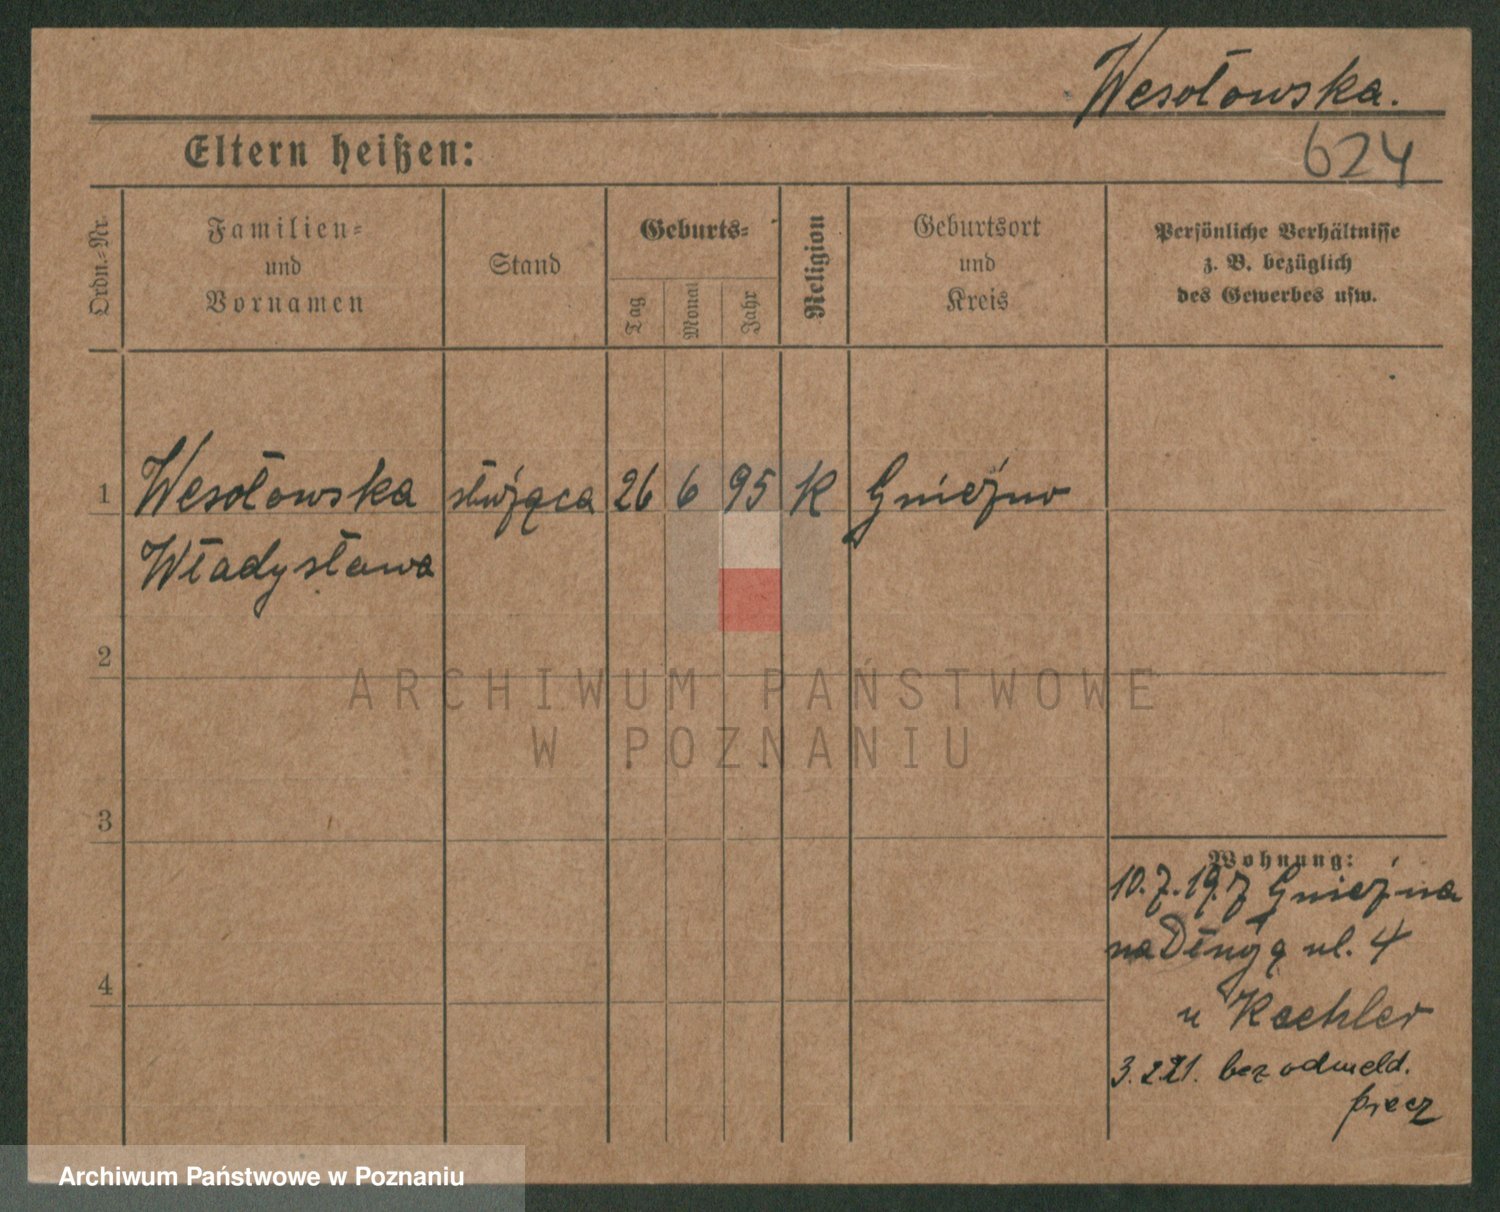 Wesołowska.
Eltern heißen:
624
Ordn.-Nr.
Familien-
und
Vornamen
Stand
Geburts-
Tag
Monat
Jahr
Religion
Geburtsort
und
Kreis
Persönliche Verhältnisse
z. B. bezüglich
des Gewerbes usw.
1 Wesołowska służąca 26 6 95 K Gniezno
Władysława
2
3
4
Wohnung:
10.7.19 z Gniezna
na Długą ul. 4
u Koehler
3.2.21. bez odmeld.
precz
ARCHIWUM PAŃSTWOWE
W POZNANIU
Archiwum Państwowe w Poznaniu